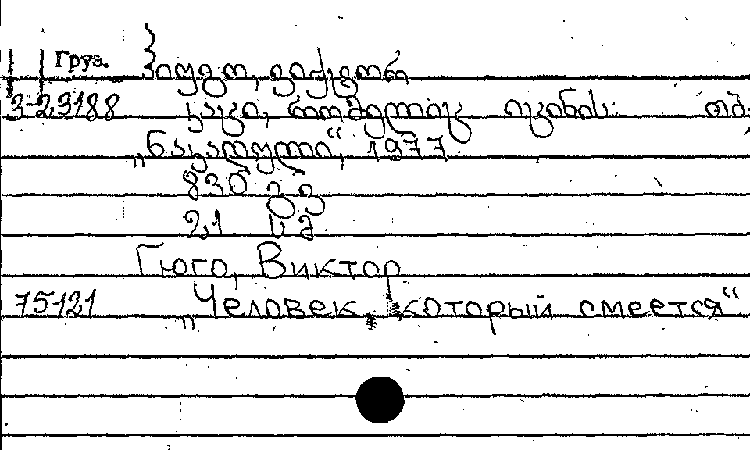 Груз.
ჰიუგო, ვიქტორ
3-23188 კაცი, რომელიც იცინის. თბ.
„ნაკადული“, 1977
830 გვ
21 სმ
Гюго, Виктор
75-121 „Человек, который смеется“